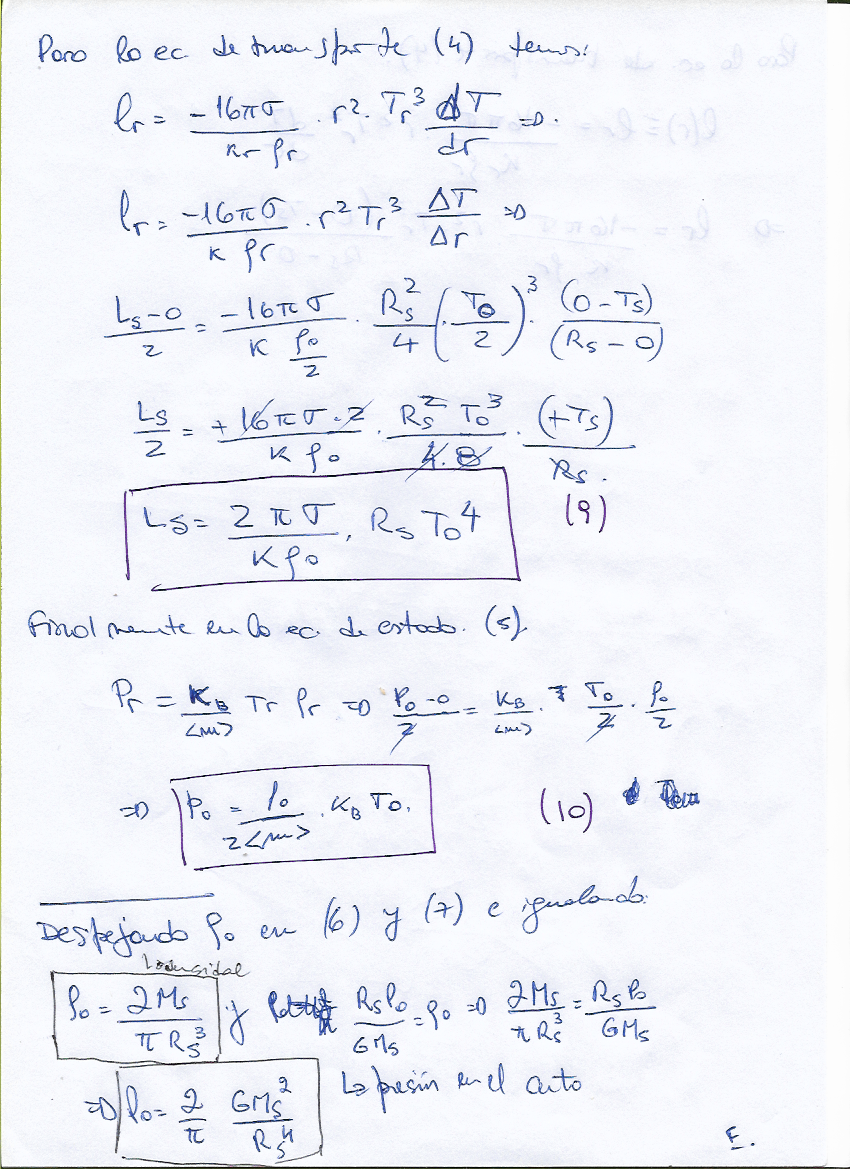 Para la ec. de transporte (4) temos:
lr = -16πσ / κr ρr · r² · Tr³ dT/dr =>
lr = -16πσ / κ ρr · r² Tr³ ΔT/Δr =>
(Ls-0)/2 = -16πσ / (κ ρo/2) · Rs²/4 (To/2)³ · (0-Ts)/(Rs-0)
Ls/2 = +16πσ·2 / κ ρo · Rs² To³ / 4·8 · (+Ts)/Rs.
Ls = 2πσ / κρo · Rs To⁴ (9)
Finalmente en la ec. de estado. (5)
Pr = KB/<m> Tr ρr => (Po-0)/2 = KB/<m> · To/2 · ρo/2
=> Po = ρo / 2<m> · KB To. (10)
Despejando ρo en (6) y (7) e igualando:
La densidad
ρo = 2Ms / π Rs³ y Rs Po / GMs = ρo => 2Ms / π Rs³ = Rs Po / GMs
=> Po = 2/π GMs² / Rs⁴ La presión en el cnto
E.